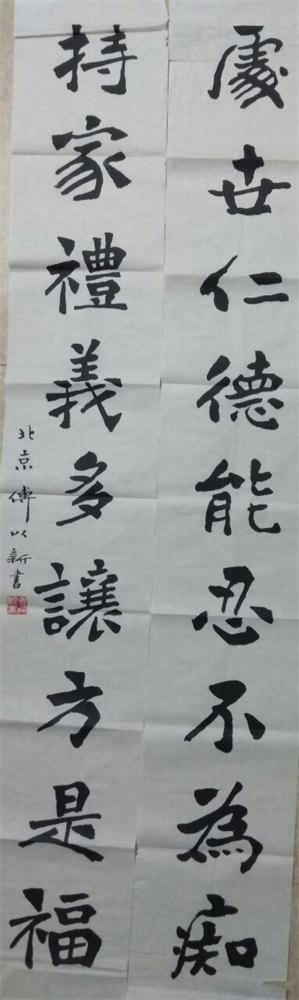 處世仁德能忍不為痴
持家禮義多讓方是福
北京傅以新書